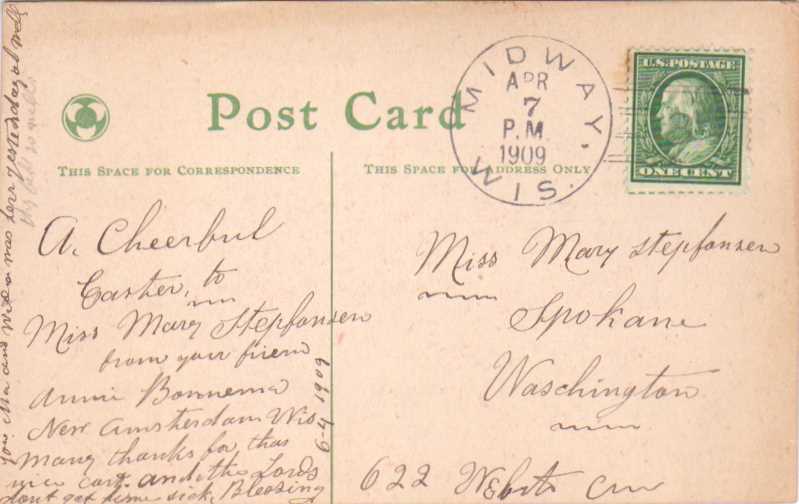 Post Card
THIS SPACE FOR CORRESPONDENCE
THIS SPACE FOR ADDRESS ONLY
MIDWAY, WIS.
APR
7
P.M.
1909
U.S. POSTAGE
ONE CENT
A. Cheerful
Easter, to
Miss Mary Stepfonsen
from your friend
Annie Bonnema
New Amsterdam Wis
Many thanks for that
nice cart. and the Lords
dont get home sick, Blessing
6-4 1909
your Ma and was here yesterday al well
Miss Mary Stepfonsen
Spokane
Waschington
622 Webster